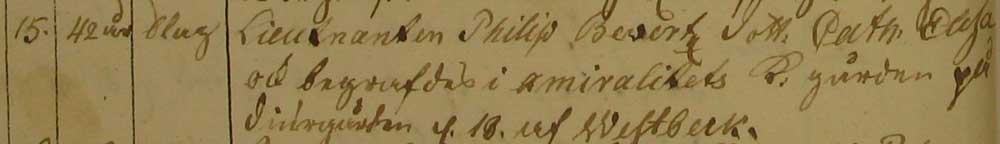 15. 42 år Slag Lieutnanten Philip Beserts Dott. Cath. Elisa
ock begrafdes i amiralitets K. gården på
Diurgården d. 18. af Westbeck.